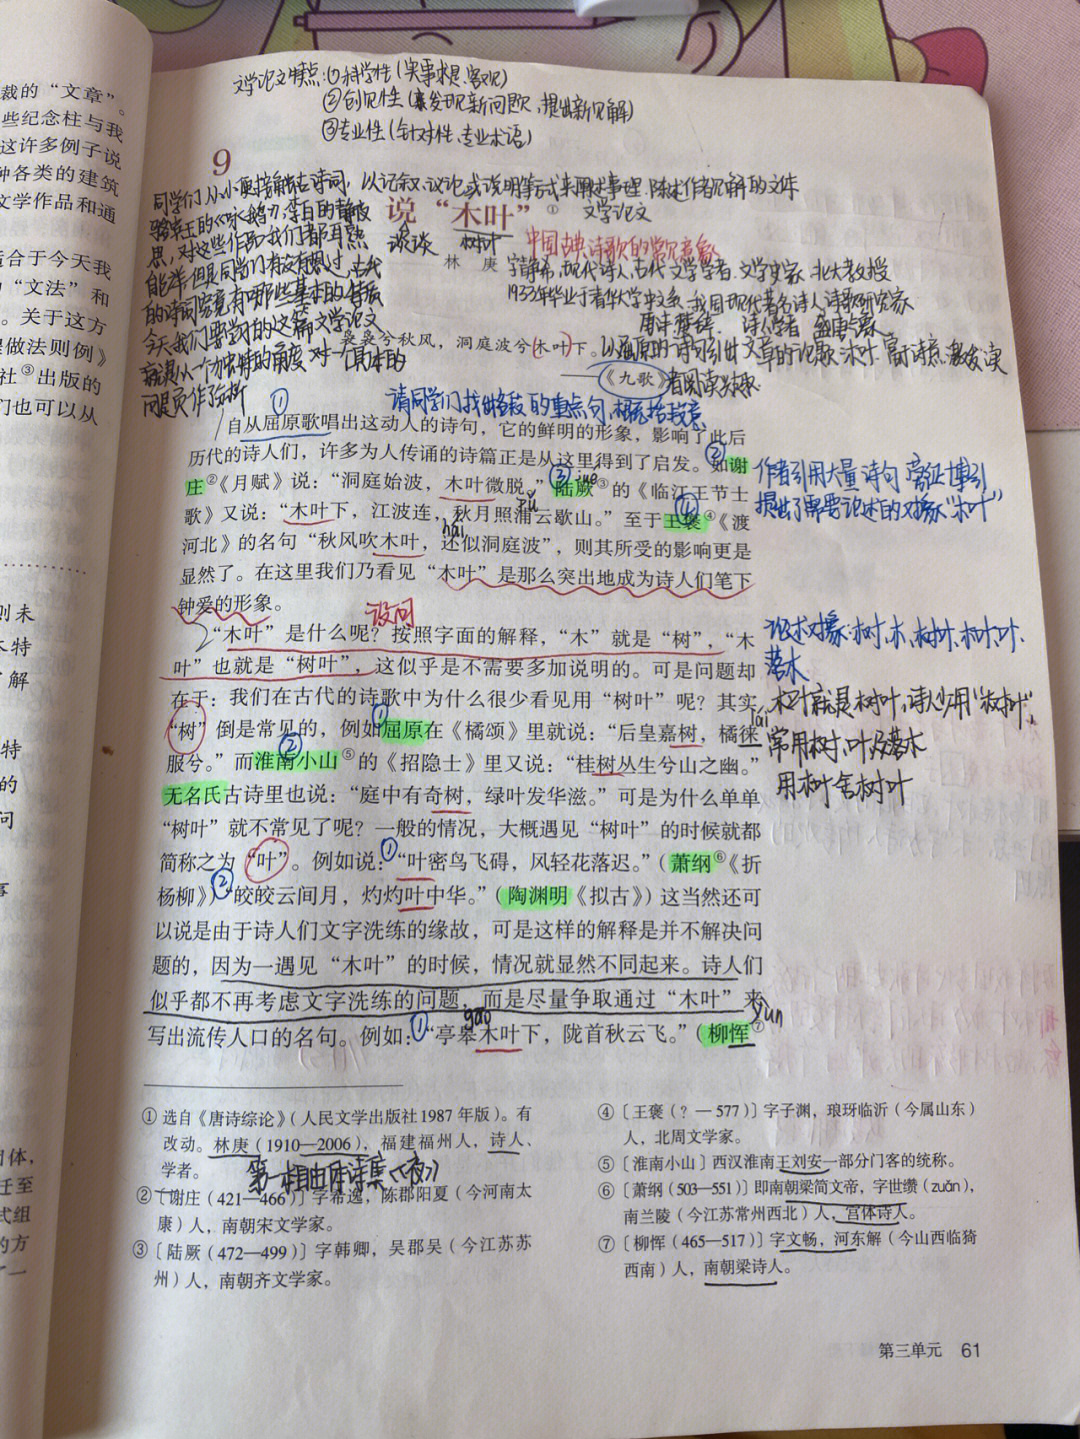 裁的“文章”。
些纪念柱与我
这许多例子说
种各类的建筑
文学作品和通
适合于今天我
“文法”和
。关于这方
程做法则例》
社③出版的
们也可以从
则未
特
解
特
的
问
事
团体，
任至
式组
的方
文学论文特点：①科学性（实事求是、客观）
②创见性（发现新问题，提出新见解）
③专业性（针对性、专业术语）
9
以记叙、议论或说明等方式来阐述事理、陈述作者见解的文体
同学们从小便接触古诗词
骆宾王的《咏鹅》，李白的静夜
思，对这些作品我们都耳熟
能详但是同学们有没有想过，古代
的诗词究竟有哪些基本的特质
今天我们要学习的这篇文学论文
就是从一个独特的角度对一个具体的
问题作了分析
说“木叶”①
文学论文
谈谈 树叶
中国古典诗歌的常见意象
林 庚
字静希，现代诗人、古代文学学者、文学史家、北大教授
1933年毕业于清华大学中文系，我国现代著名诗人、诗歌研究家
袅袅兮秋风，洞庭波兮木叶下。
以屈原的诗句引出文章的论题“木叶”，富于诗意，激发读
者阅读兴趣
——《九歌》
请同学们找出各段的重点句，概括段意
自从屈原歌唱出这动人的诗句，它的鲜明的形象，影响了此后
历代的诗人们，许多为人传诵的诗篇正是从这里得到了启发。如谢
庄②《月赋》说：“洞庭始波，木叶微脱。”陆厥③的《临江王节士
歌》又说：“木叶下，江波连，秋月照浦云歇山。”至于王褒④《渡
河北》的名句“秋风吹木叶，还似洞庭波”，则其所受的影响更是
显然了。在这里我们乃看见“木叶”是那么突出地成为诗人们笔下
钟爱的形象。
作者引用大量诗句，旁征博引
提出了需要论述的对象“木叶”
jué
hái
设问
“木叶”是什么呢？按照字面的解释，“木”就是“树”，“木
叶”也就是“树叶”，这似乎是不需要多加说明的。可是问题却
在于：我们在古代的诗歌中为什么很少看见用“树叶”呢？其实
“树”倒是常见的，例如屈原在《橘颂》里就说：“后皇嘉树，橘徕
服兮。”而淮南小山⑤的《招隐士》里又说：“桂树丛生兮山之幽。”
无名氏古诗里也说：“庭中有奇树，绿叶发华滋。”可是为什么单单
“树叶”就不常见了呢？一般的情况，大概遇见“树叶”的时候就都
简称之为“叶”。例如说：“叶密鸟飞碍，风轻花落迟。”（萧纲⑥《折
杨柳》）“皎皎云间月，灼灼叶中华。”（陶渊明《拟古》）这当然还可
以说是由于诗人们文字洗练的缘故，可是这样的解释是并不解决问
题的，因为一遇见“木叶”的时候，情况就显然不同起来。诗人们
似乎都不再考虑文字洗练的问题，而是尽量争取通过“木叶”来
写出流传人口的名句。例如：“亭皋木叶下，陇首秋云飞。”（柳恽⑦
论述对象：树、木、树叶、木叶、
落木
木叶就是树叶，诗人少用“树叶”，
常用树、叶及落木
用木叶舍树叶
lái
gāo
yùn
① 选自《唐诗综论》（人民文学出版社1987年版）。有
改动。林庚（1910—2006），福建福州人，诗人、
学者。
第一本自由体诗集《夜》
②〔谢庄（421—466）〕字希逸，陈郡阳夏（今河南太
康）人，南朝宋文学家。
③〔陆厥（472—499）〕字韩卿，吴郡吴（今江苏苏
州）人，南朝齐文学家。
④〔王褒（？—577）〕字子渊，琅玡临沂（今属山东）
人，北周文学家。
⑤〔淮南小山〕西汉淮南王刘安一部分门客的统称。
⑥〔萧纲（503—551）〕即南朝梁简文帝，字世缵（zuǎn），
南兰陵（今江苏常州西北）人，宫体诗人。
⑦〔柳恽（465—517）〕字文畅，河东解（今山西临猗
西南）人，南朝梁诗人。
第三单元 61